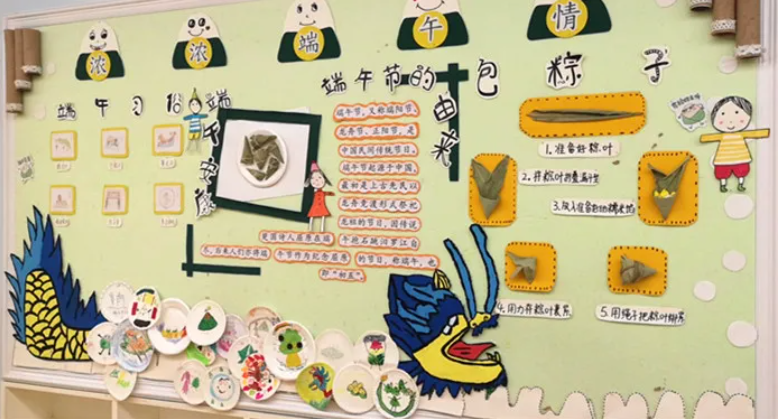 浓浓端午情
端午习俗
端午安康
端午节的由来
包粽子
端午节，又称端阳节、
龙舟节、正阳节，是
中国民间传统节日。
端午节起源于中国，
最初是上古先民以
龙舟竞渡形式祭祀
龙祖的节日。因传说
是楚诗人屈原在端午抱石跳汨罗江自
尽，后来人们亦将端午节作为纪念屈原的节日，称端午，也
1.准备好粽叶
2.将粽叶折叠
3.放入准备好的糯米
4.用力将粽叶裹
5.用绳子把粽叶绑